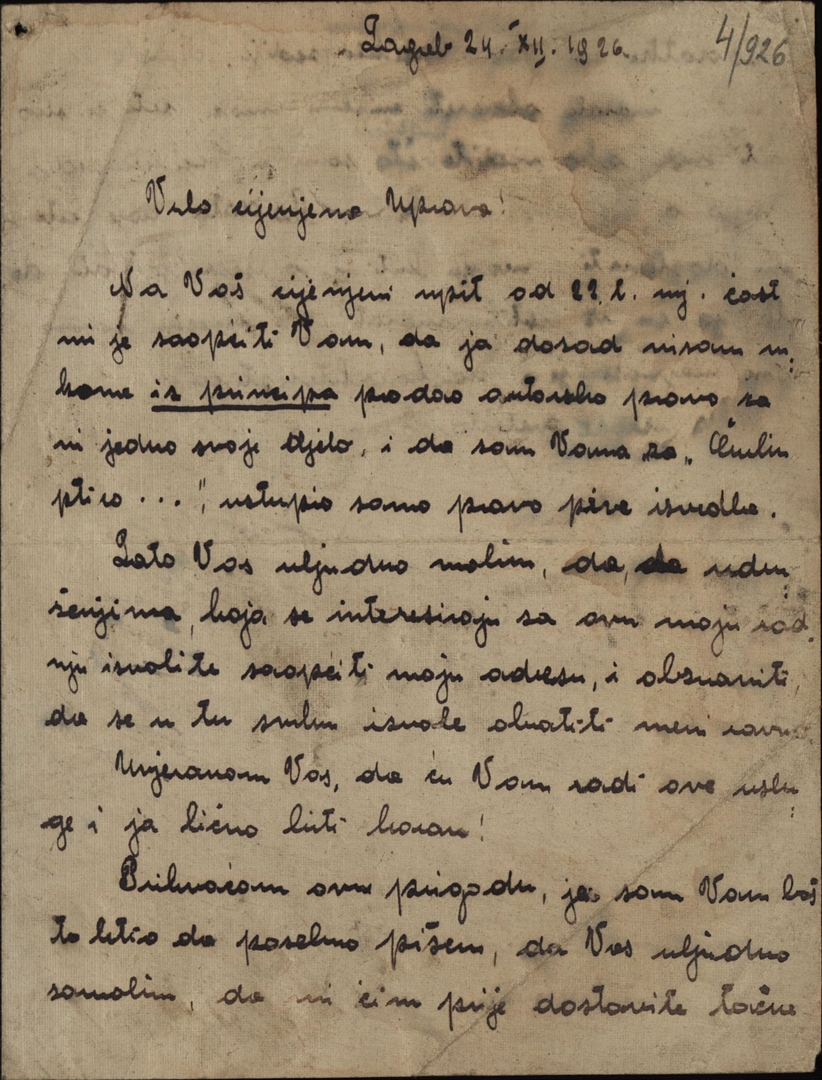 Zagreb 24. XII. 1926.
4/926
Vrlo cijenjena Uprava!
Na Vaš cijenjeni upit od 22. t. mj. čast
mi je saopćiti Vam, da ja dosad nisam ni:
kome iz principa prodao autorsko pravo za
ni jedno svoje djelo, i da sam Vama za „
pticо ...", ustupio samo pravo prve izvedbe.
Zato Vas uljudno molim, da, da udru:
ženjima, koja se interesiraju za ovu moju rad:
nju izvolite saopćiti moju adresu, i obznaniti,
da se u tu svrhu izvole obratiti meni ravno
Uvjeravam Vas, da ću Vam radi ove uslu:
ge i ja lično biti haran!
Prihvaćam ovu prigodu, jer sam Vam baš
to htio da posebno pišem, da Vas uljudno
zamolim, da mi čim prije dostavite točne